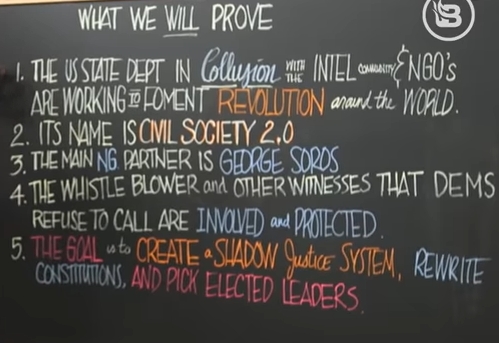 WHAT WE WILL PROVE
1. THE US STATE DEPT IN Collusion WITH THE INTEL COMMUNITY & NGO's
ARE WORKING TO FOMENT REVOLUTION around the WORLD.
2. ITS NAME IS CIVIL SOCIETY 2.0
3. THE MAIN NG PARTNER IS GEORGE SOROS
4. THE WHISTLE BLOWER and OTHER WITNESSES THAT DEMS
REFUSE TO CALL ARE INVOLVED and PROTECTED.
5. THE GOAL is to CREATE a SHADOW Justice SYSTEM, REWRITE
CONSTITUTIONS, AND PICK ELECTED LEADERS.
B